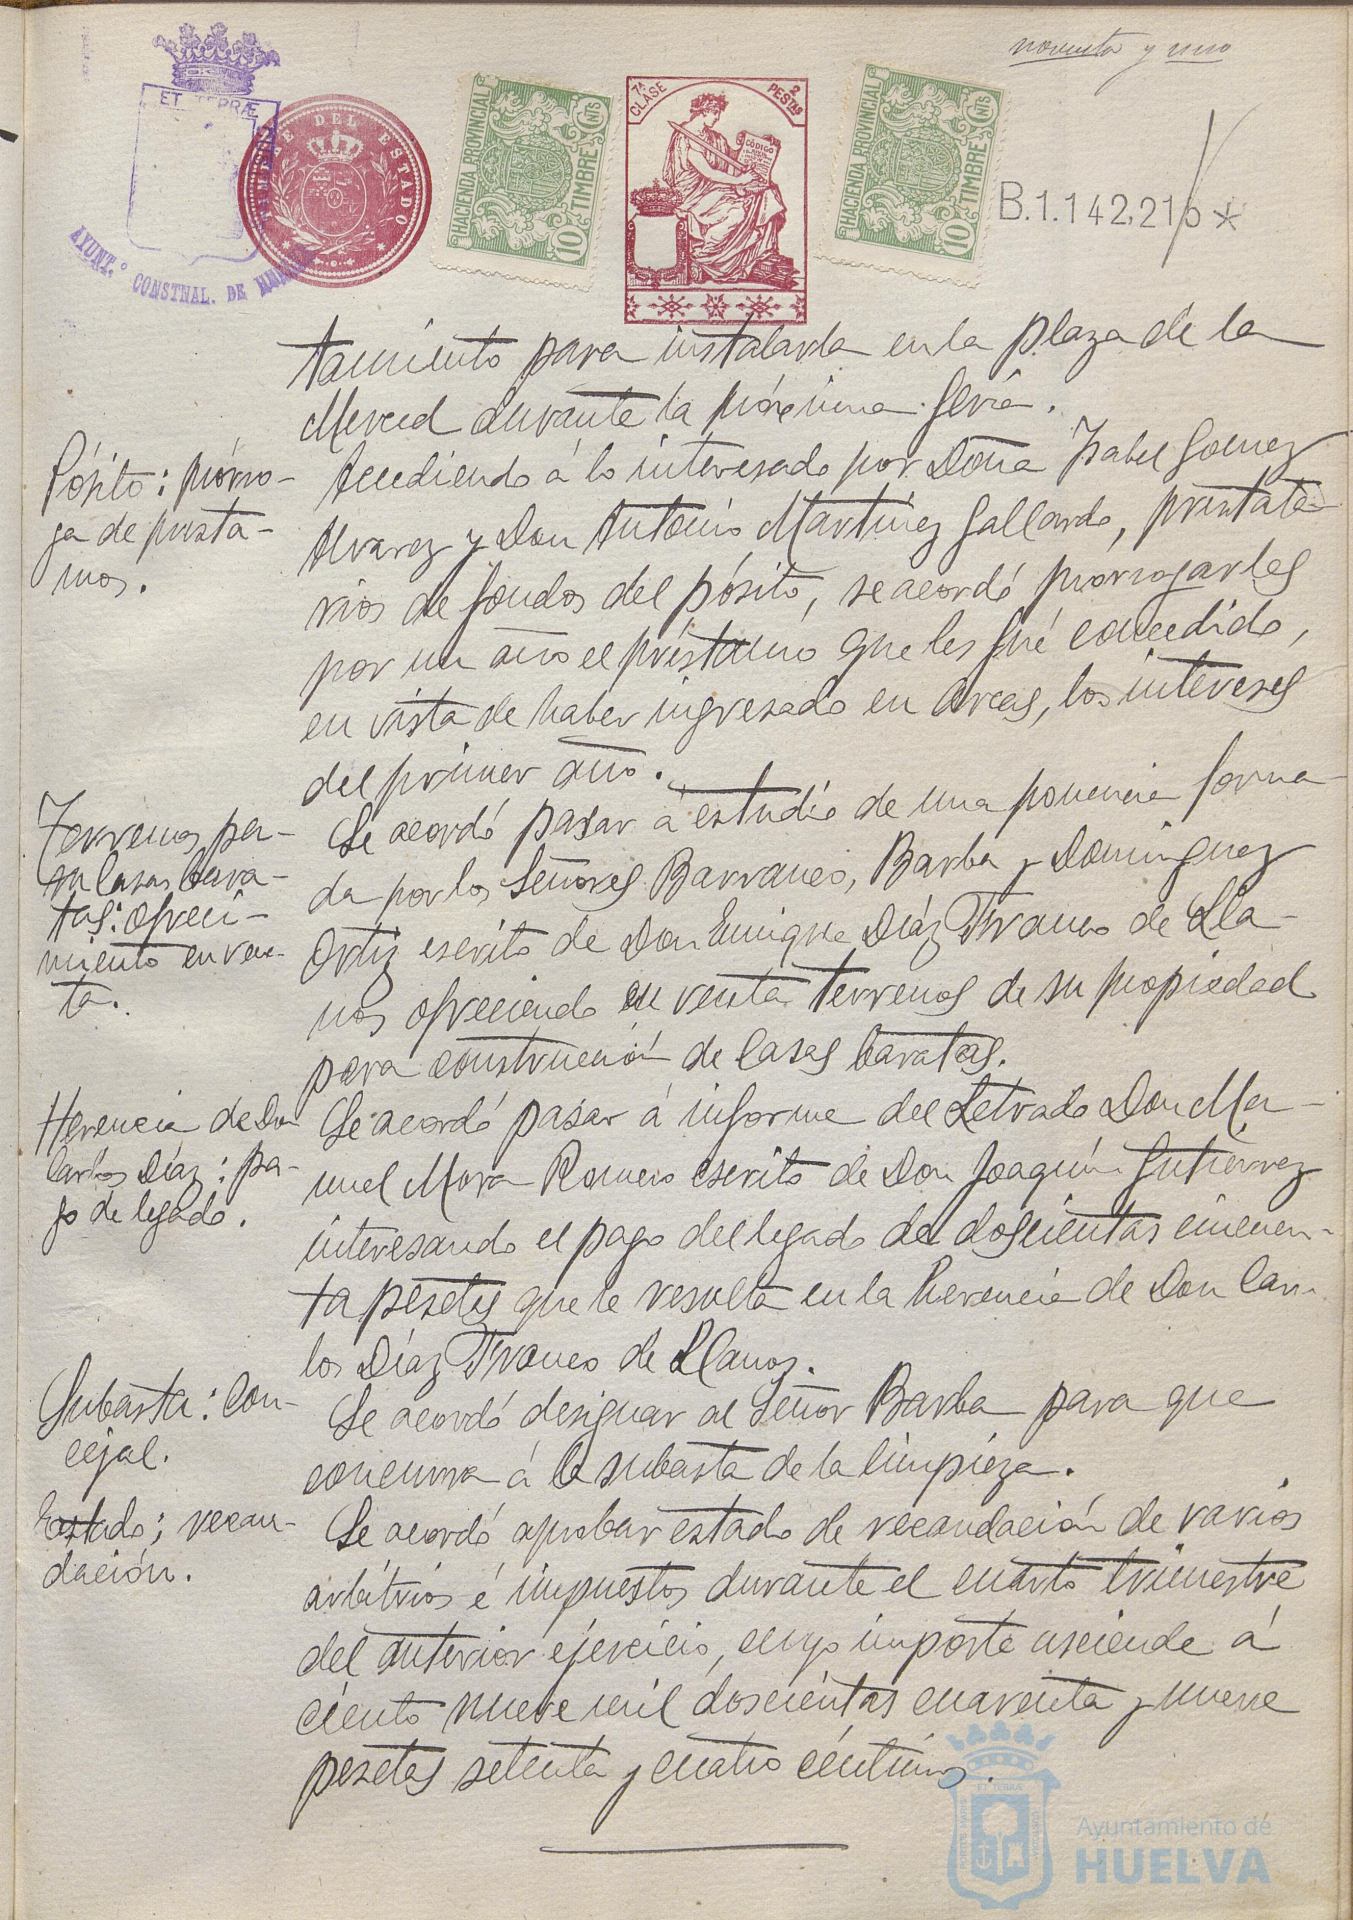 noventa y uno
ET TERRÆ
AYUNT.º CONSTNAL. DE
DEL ESTADO
HACIENDA PROVINCIAL
10 CNTS
TIMBRE
7ª CLASE
2 PESTAS
CÓDIGO
HACIENDA PROVINCIAL
10 CNTS
TIMBRE
B.1.142,215 *
tamiento para instalarla en la plaza de la
Merced durante la próxima feria.
Pósito: prórro-
ga de presta-
mos.
Accediendo á lo interesado por Doña Isabel Gomez
Alvarez y Don Antonio Martinez Gallardo, prestata-
rios de fondos del pósito, se acordó prorrogarles
por un año el préstamo que les fué concedido,
en vista de haber ingresado en arcas, los intereses
del primer año.
Terrenos pa-
ra casas bara-
tas: ofreci-
miento en ven-
ta.
Se acordó pasar á estudio de una ponencia forma-
da por los Señores Barranco, Barba y Dominguez
Ortiz escrito de Don Enrique Díaz Franco de Lla-
nos ofreciendo en venta terrenos de su propiedad
para construcción de casas baratas.
Herencia de Don
Carlos Díaz: pa-
go de legado.
Se acordó pasar á informe del Letrado Don Ma-
nuel Mora Romero escrito de Don Joaquín Gutierrez
interesando el pago del legado de doscientas cincuen-
ta pesetas que le resulta en la herencia de Don Car-
los Díaz Franco de Llanos.
Subasta: con-
cejal.
Se acordó designar al Señor Barba para que
concurra á la subasta de la limpieza.
Estado; recau-
dación.
Se acordó aprobar estado de recaudación de varios
arbitrios é impuestos durante el cuarto trimestre
del anterior ejercicio, cuyo importe asciende á
ciento nueve mil doscientas cuarenta y nueve
pesetas setenta y cuatro céntimos.
Ayuntamiento de
HUELVA